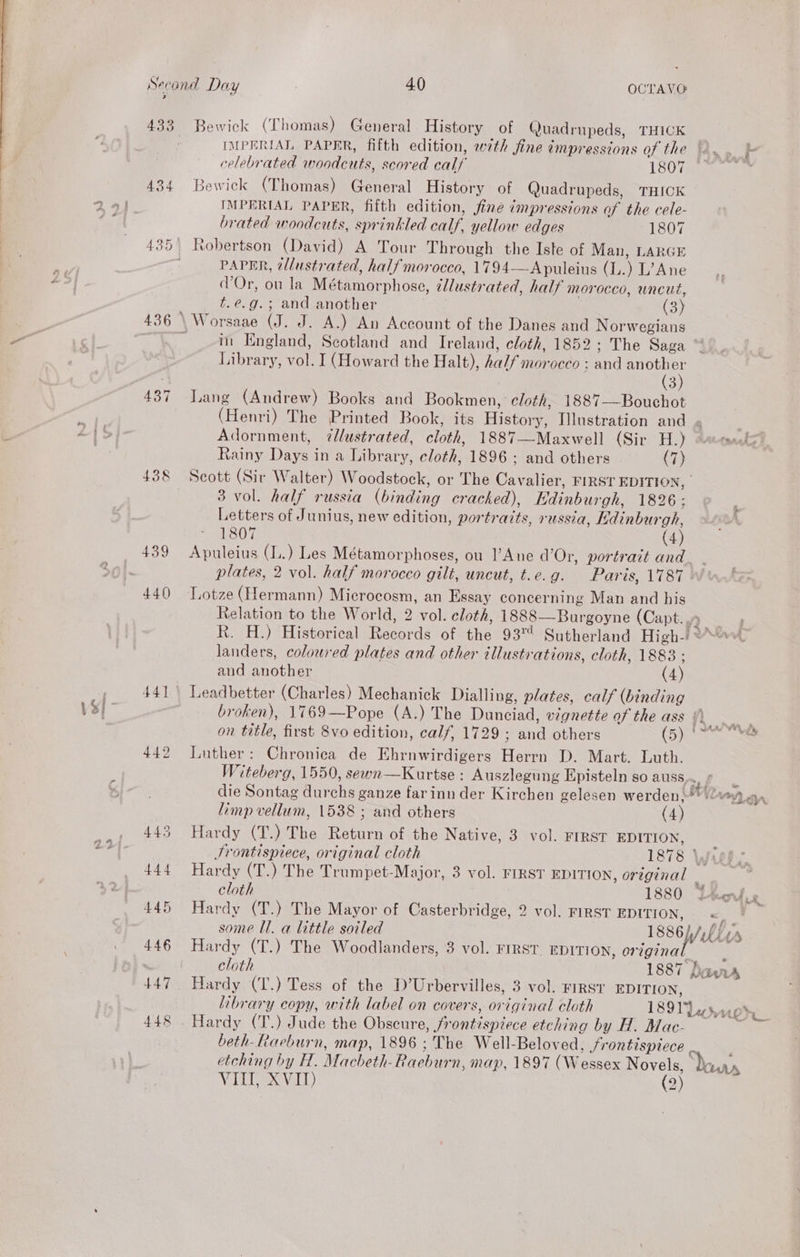 Second Day 40 OCTAVO
433 Bewick (Thomas) General History of Quadrupeds, THICK
IMPERIAL PAPER, fifth edition, with fine impressions of the
celebrated woodcuts, scored calf 1807
434 Bewick (Thomas) General History of Quadrupeds, THICK
IMPERIAL PAPER, fifth edition, fine impressions of the cele-
brated woodcuts, sprinkled calf, yellow edges 1807
435 Robertson (David) A Tour Through the Isle of Man, LARGE
PAPER, illustrated, half morocco, 1794—Apuleius (L.) L'Ane
d'Or, ou la Métamorphose, illustrated, half morocco, uncut,
t.e.g.; and another (3)
436 Worsaae (J. J. A.) An Account of the Danes and Norwegians
in England, Scotland and Ireland, cloth, 1852; The Saga
Library, vol. I (Howard the Halt), half morocco; and another
(3)
437 Lang (Andrew) Books and Bookmen, cloth, 1887—Bouchot
(Henri) The Printed Book, its History, Illustration and
Adornment, illustrated, cloth, 1887—Maxwell (Sir H.)
Rainy Days in a Library, cloth, 1896; and others (7)
438 Scott (Sir Walter) Woodstock, or The Cavalier, FIRST EDITION,
3 vol. half russia (binding cracked), Edinburgh, 1826;
Letters of Junius, new edition, portraits, russia, Edinburgh,
1807 (4)
439 Apuleius (L.) Les Métamorphoses, ou l'Ane d'Or, portrait and
plates, 2 vol. half morocco gilt, uncut, t.e.g. Paris, 1787
440 Lotze (Hermann) Microcosm, an Essay concerning Man and his
Relation to the World, 2 vol. cloth, 1888—Burgoyne (Capt.
R. H.) Historical Records of the 93rd Sutherland High-
landers, coloured plates and other illustrations, cloth, 1883;
and another (4)
441 Leadbetter (Charles) Mechanick Dialling, plates, calf (binding
broken), 1769—Pope (A.) The Dunciad, vignette of the ass
on title, first 8vo edition, calf, 1729; and others (5)
442 Luther: Chronica de Ehrnwirdigers Herrn D. Mart. Luth.
Witeberg, 1550, sewn—Kurtse: Auszlegung Episteln so auss
die Sontag durchs ganze far inn der Kirchen gelesen werden,
limp vellum, 1538; and others (4)
443 Hardy (T.) The Return of the Native, 3 vol. FIRST EDITION,
frontispiece, original cloth 1878
444 Hardy (T.) The Trumpet-Major, 3 vol. FIRST EDITION, original
cloth 1880
445 Hardy (T.) The Mayor of Casterbridge, 2 vol. FIRST EDITION,
some ll. a little soiled 1886
446 Hardy (T.) The Woodlanders, 3 vol. FIRST EDITION, original
cloth 1887
447 Hardy (T.) Tess of the D'Urbervilles, 3 vol. FIRST EDITION,
library copy, with label on covers, original cloth 1891
448 Hardy (T.) Jude the Obscure, frontispiece etching by H. Mac-
beth-Raeburn, map, 1896; The Well-Beloved, frontispiece
etching by H. Macbeth-Raeburn, map, 1897 (Wessex Novels,
VIII, XVII) (2)